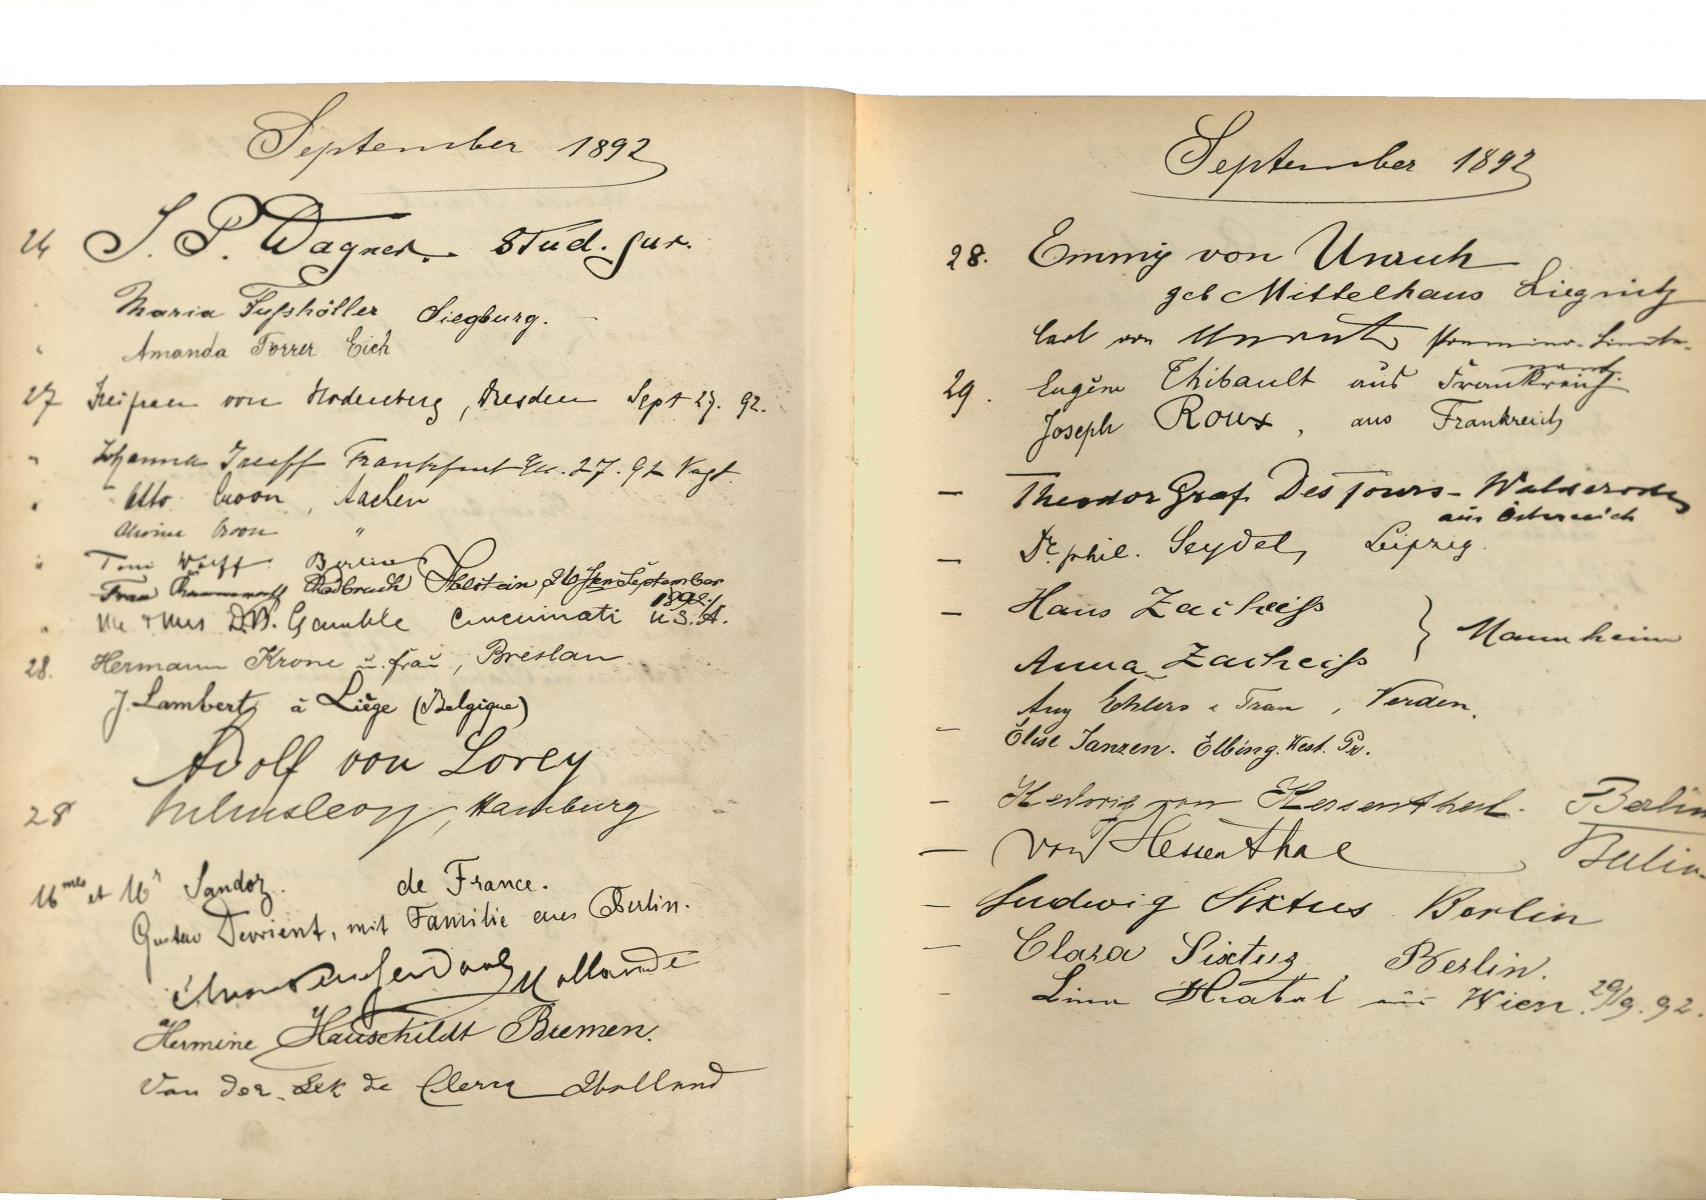 September 1892
26 J. P. Wagner. stud. jur.
" Maria Fußhöller Siegburg.
" Amanda Forrer Eich
27 von Hodenberg, Dresden Sept 27. 92.
" Johanna Frankfurt 27. 92
" Otto Croon, Aachen
Croon "
" Toni Wolff. Berlin
Frau Holstein, 26sten September
1892.
" Mr & Mrs D.B. Gamble Cincinnati U.S.A.
28. Hermann Krone u. frau, Breslau
J. Lambert, à Liège (Belgique)
Adolf von Lorey
28 Hamburg
Mmes et Mr Sandoz. de France.
Gustav Devrient, mit Familie aus Berlin.
Hollande
Hermine Hauschildt Bremen.
Van der Lek de Clercq Holland
September 1892
28. Emmy von Unruh
geb Mittelhaus Liegnitz
Carl von Unruh Premier-Lieute-
nant.
29. Eugène Thibault aus Frankreich.
Joseph Roux, aus Frankreich
— Theodor Graf DesFours-Walderode
aus Österreich
— Dr. phil. Seydel, Leipzig.
— Hans Zacheiß
} Mannheim
Anna Zacheiß
Aug Ehlers u Frau, Verden.
— Elise Janzen. Elbing. West. Pr.
— Hedwig von Hessenthal. Berlin
— von Hessenthal Berlin
— Ludwig Sixtus Berlin
— Clara Sixtus, Berlin.
- Lina Hrabal aus Wien. 29/9. 92.